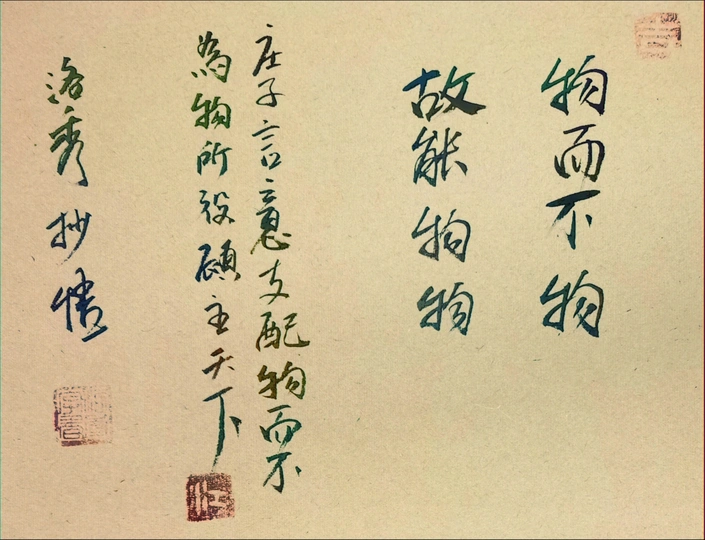 物而不物
故能物物
庄子言意支配物而不
為物所役顧主天下
洛秀抄